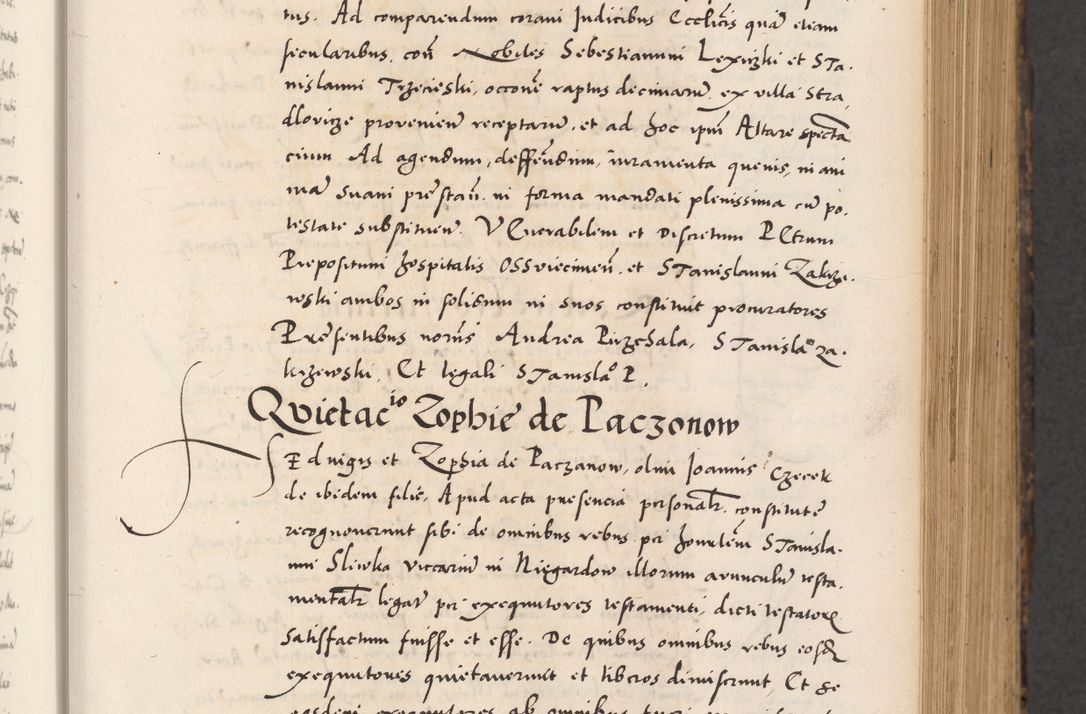 tus. Ad comparendum coram Judicibus Ecclīcis quā etiam
secularibus, coñ Nobiles Sebestianum Lexiczki et STa.
nislaum Trzecieski, occone raptus decimarū ex villa Stra,
dlovicze provenien̄ receptarū, et ad hoc ipm̄ Altare specta
cium Ad agendum, deffendūm, iuramenta quevis, in ani
mā suam prestan̄. in forma mandati plenissima cū po.
testate substituen̄. VEnerabilem et Discretum PEtrum
Prepositum hospitalis OSSviecimen̄. et STanislaum Zakrze.
wski ambos in solidum in suos constituit procuratores
Presentibus nōrīs Andrea Pirzchala, STanislaº za.
krzewski, Et legali STanislaº P.
Qvietacio Zophie de Paczonow
HEdvigis et Zophia de Paczanow, olim Joannis Czecek
de ibedem filie, Apud acta presencia personalr. constitute
recognoverunt sibi de omnibus rebus per honestem STanisla.
um Sliwka viccariū in Niegardow illorum avunculū testa.
mentalr legat̄ per exequutores testamenti, dicti testatorȩ
satisfactum fuisse et esse. De quibus omnibus rebus eosd
exequutores quietaverunt et liberos dimiserunt, Et se
eosdem exequutores ab omnibus